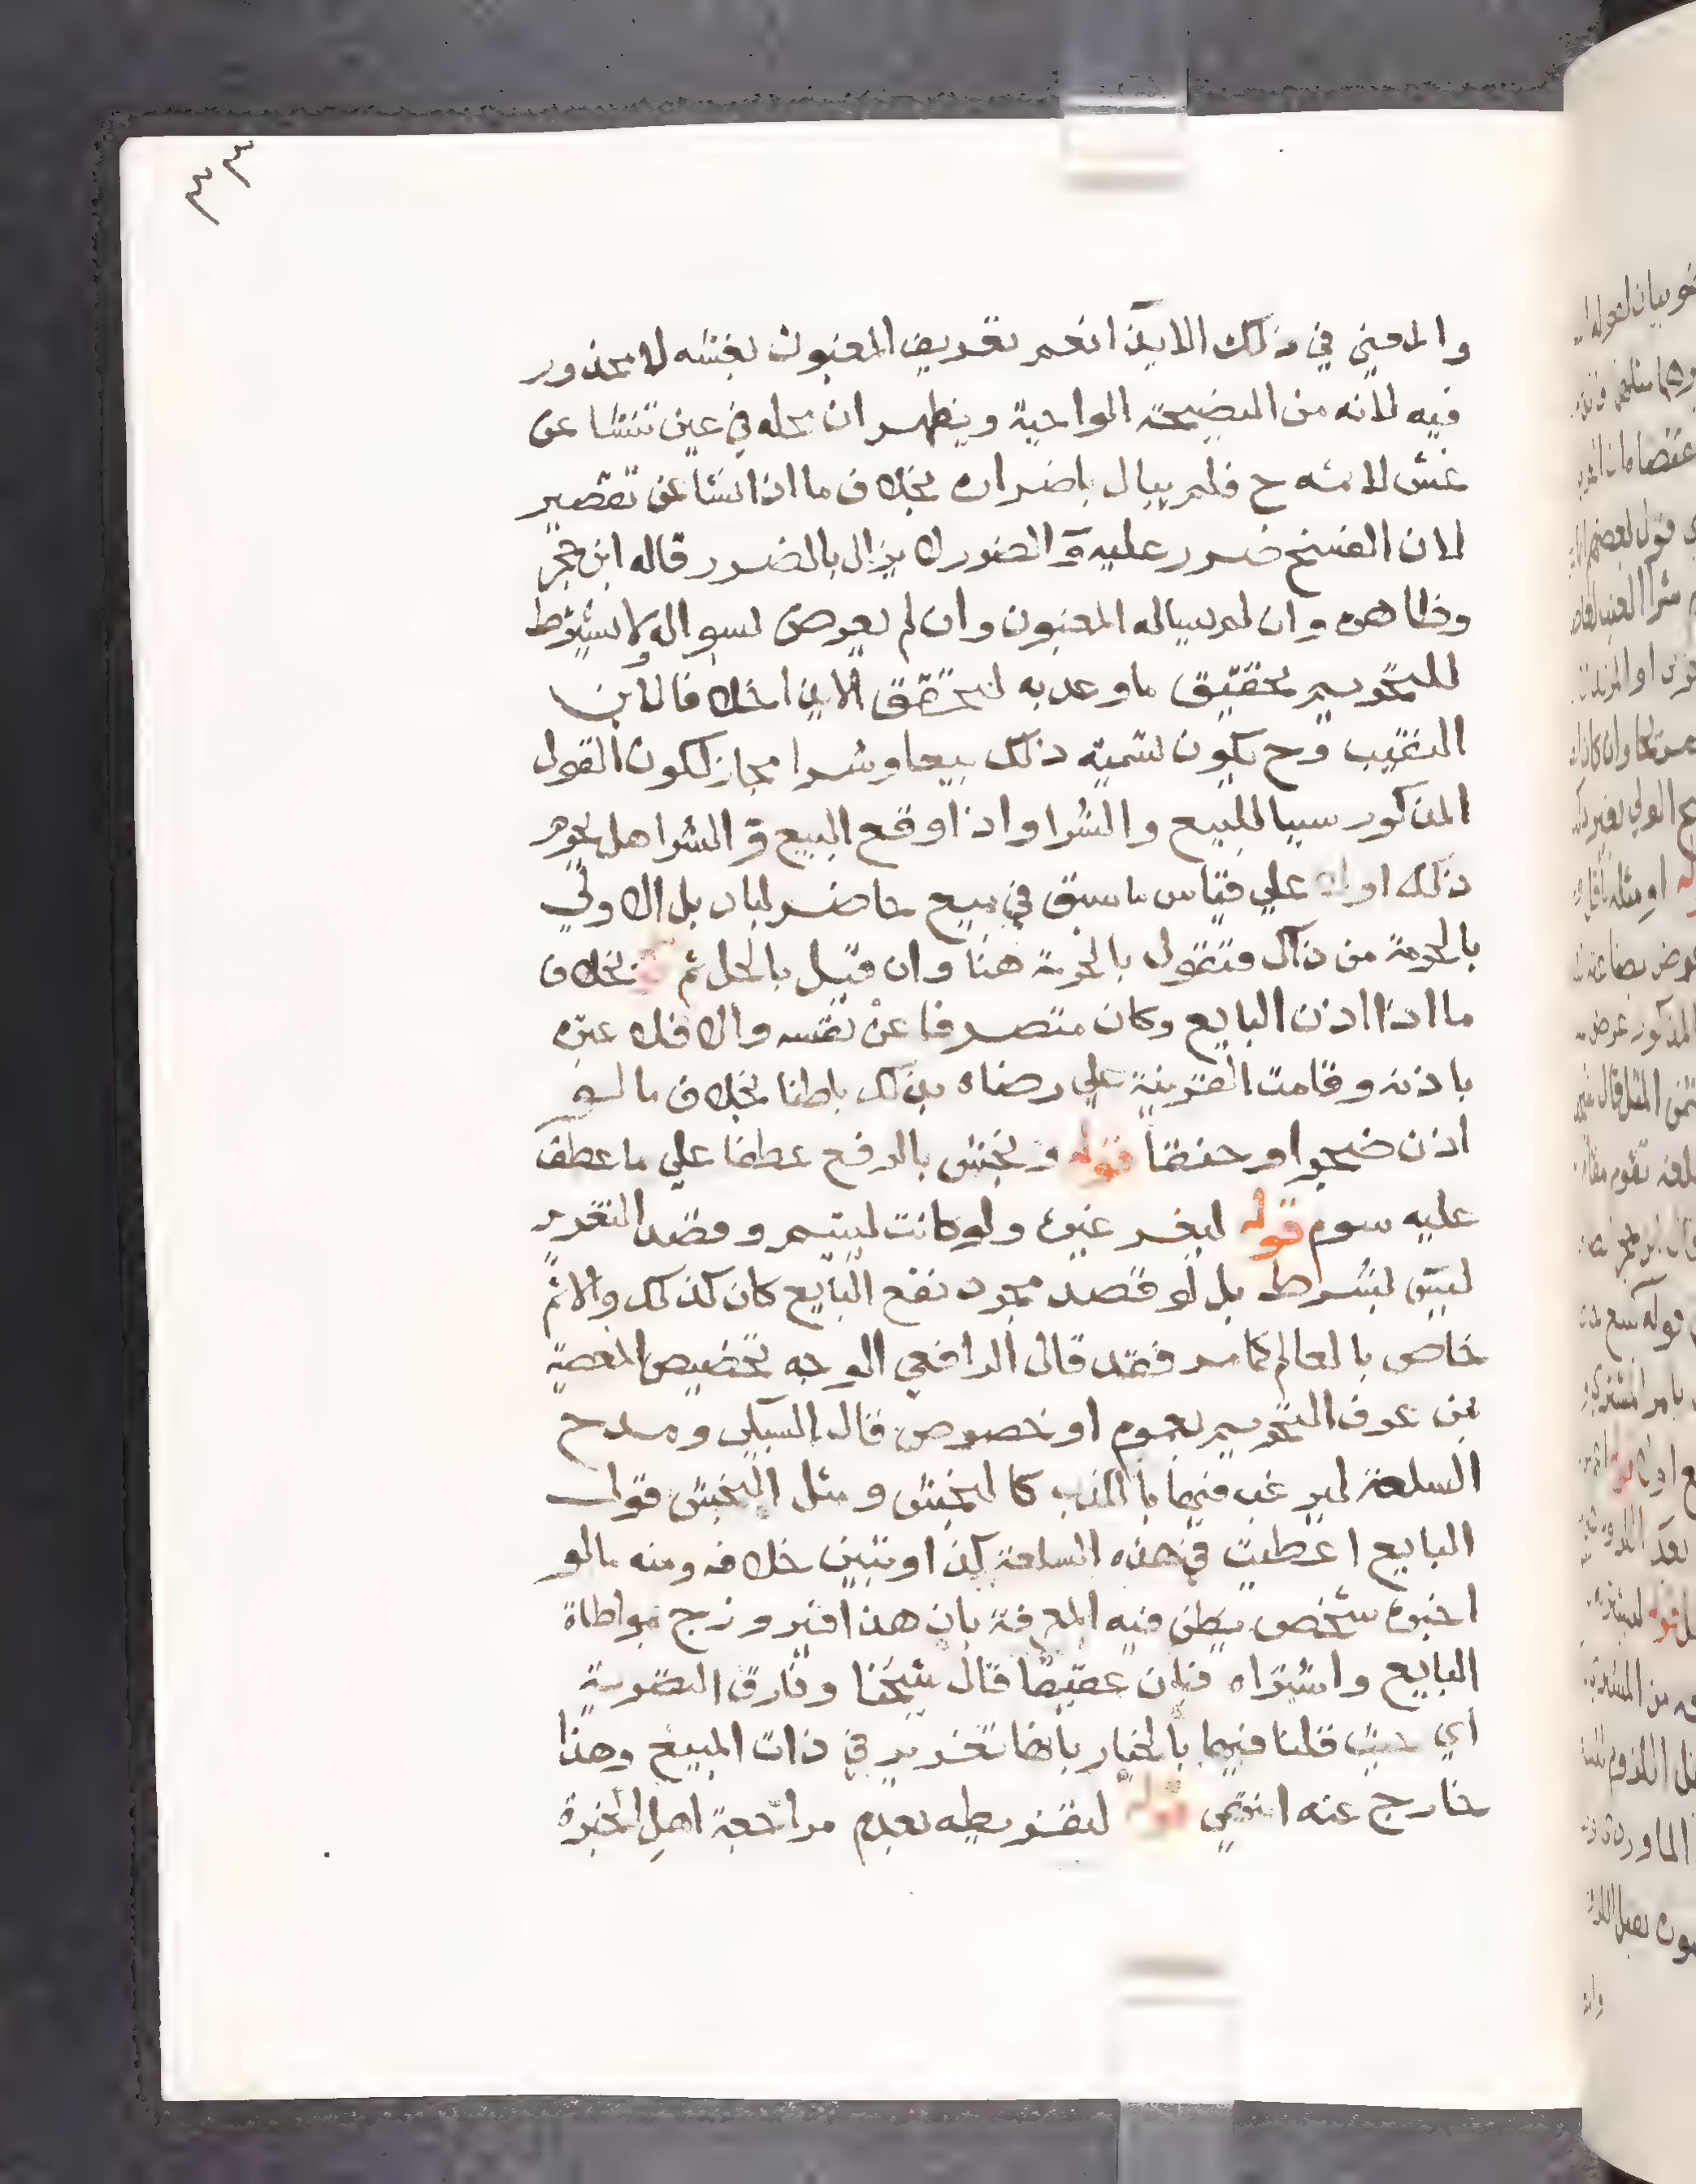 ٣٣
والمعني في ذلك الايذا نعم تعريف المغبون بغبنه لا محذور
فيه لانه من النصيحة الواجبة ويظهر ان محله في غبن تنشا عن
غش لاثمه ح فلم يبال باضراره بخلاف ما اذا انشا عن تقصير
لان الفسخ ضرر عليه و الضرر لا يزال بالضرر قاله ابن حجر
وظاهره وان لم يساله المغبون وان لم يعرض لسواله ولا يشترط
للتحريم تحقيق ما وعد به لتحقق الايذا خلافا لابن
النقيب وح يكون تسميته ذلك بيعا وشرا مجاز لكون القول
المذكور سببا للبيع والشرا واذا وقع البيع و الشرا هل يحرم
ذلك اولا علي قياس ما سبق في بيع حاضر لباد بل الاولي
بالحرمة من ذاك فنقول بالحرمة هنا وان قيل بالحل ثم بخلاف
ما اذا اذن البايع وكان متصرفا عن نفسه والا فلا عبرة
باذنه وقامت القرينة علي رضاه بذلك باطنا بخلاف ما لو
اذن ضجرا وحنقا قوله ونجش بالرفع عطفا علي ما عطف
عليه سوم قوله ليغر غيره ولو كانت ليتيم وقصد التغرير
ليس بشرط بل لو قصد مجرد نفع البايع كان كذلك والاثم
خاص بالعالم كما مر فقد قال الرافعي الوجه تخصيص المعصية
بمن عرف التحريم بعموم او خصوص قال السبكي ومدح
السلعة ليرغب فيها بالكذب كالنجش ومثل النجش قول
البايع اعطيت في هذه السلعة كذا وتبين خلافه ومنه ما لو
اخبره شخص يظن فيه المعرفة بان هذا فيروزج بمواطاة
البايع واشتراه فبان عقيقا قال شيخنا وفارق التصرية
اي حيث قلنا فيها بالخيار بانها تغرير في ذات المبيع وهذا
خارج عنه انتهي قوله لتفريطه بعدم مراجعة اهل الخبرة